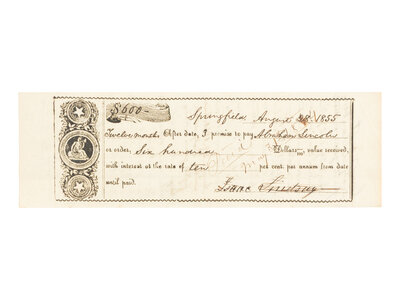 $600-
Springfield, August 28 1855
Twelve months After date, I promise to pay Abraham Lincoln
or order, Six hundred Dollars /100, value received,
with interest at the rate of ten per cent. per annum from date
until paid. Isaac Lindsay